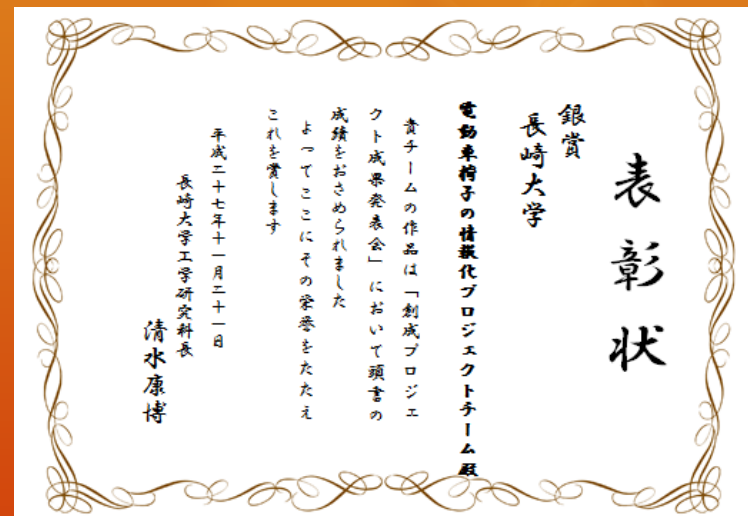 表彰状
銀賞
長崎大学
電動車椅子の情報化プロジェクトチーム殿
貴チームの作品は「創成プロジェ
クト成果発表会」において頭書の
成績をおさめられました
よってここにその栄誉をたたえ
これを賞します
平成二十七年十一月二十一日
長崎大学工学研究科長
清水康博